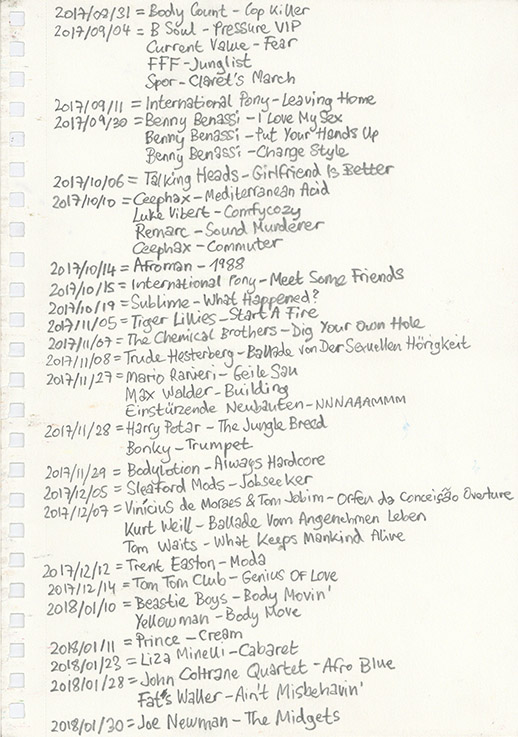 2017/08/31 = Body Count - Cop Killer
2017/09/04 = B Soul - Pressure VIP
Current Value - Fear
FFF - Junglist
Spor - Claret's March
2017/09/11 = International Pony - Leaving Home
2017/09/30 = Benny Benassi - I Love My Sex
Benny Benassi - Put Your Hands Up
Benny Benassi - Change Style
2017/10/06 = Talking Heads - Girlfriend Is Better
2017/10/10 = Ceephax - Mediterranean Acid
Luke Vibert - Comfycozy
Remarc - Sound Murderer
Ceephax - Commuter
2017/10/14 = Afroman - 1988
2017/10/15 = International Pony - Meet Some Friends
2017/10/19 = Sublime - What Happened?
2017/11/05 = Tiger Lillies - Start A Fire
2017/11/07 = The Chemical Brothers - Dig Your Own Hole
2017/11/08 = Trude Hesterberg - Ballade von Der Sexuellen Hörigkeit
2017/11/27 = Mario Ranieri - Geile Sau
Max Walder - Building
Einstürzende Neubauten - NNNAAAMMM
2017/11/28 = Harry Potar - The Jungle Breed
Bonky - Trumpet
2017/11/29 = Bodylotion - Always Hardcore
2017/12/05 = Sleaford Mods - Jobseeker
2017/12/07 = Vinícius de Moraes & Tom Jobim - Orfeu da Conceição Overture
Kurt Weill - Ballade Vom Angenehmen Leben
Tom Waits - What Keeps Mankind Alive
2017/12/12 = Trent Easton - Moda
2017/12/14 = Tom Tom Club - Genius Of Love
2018/01/10 = Beastie Boys - Body Movin'
Yellowman - Body Move
2018/01/11 = Prince - Cream
2018/01/23 = Liza Minelli - Cabaret
2018/01/28 = John Coltrane Quartet - Afro Blue
Fats Waller - Ain't Misbehavin'
2018/01/30 = Joe Newman - The Midgets